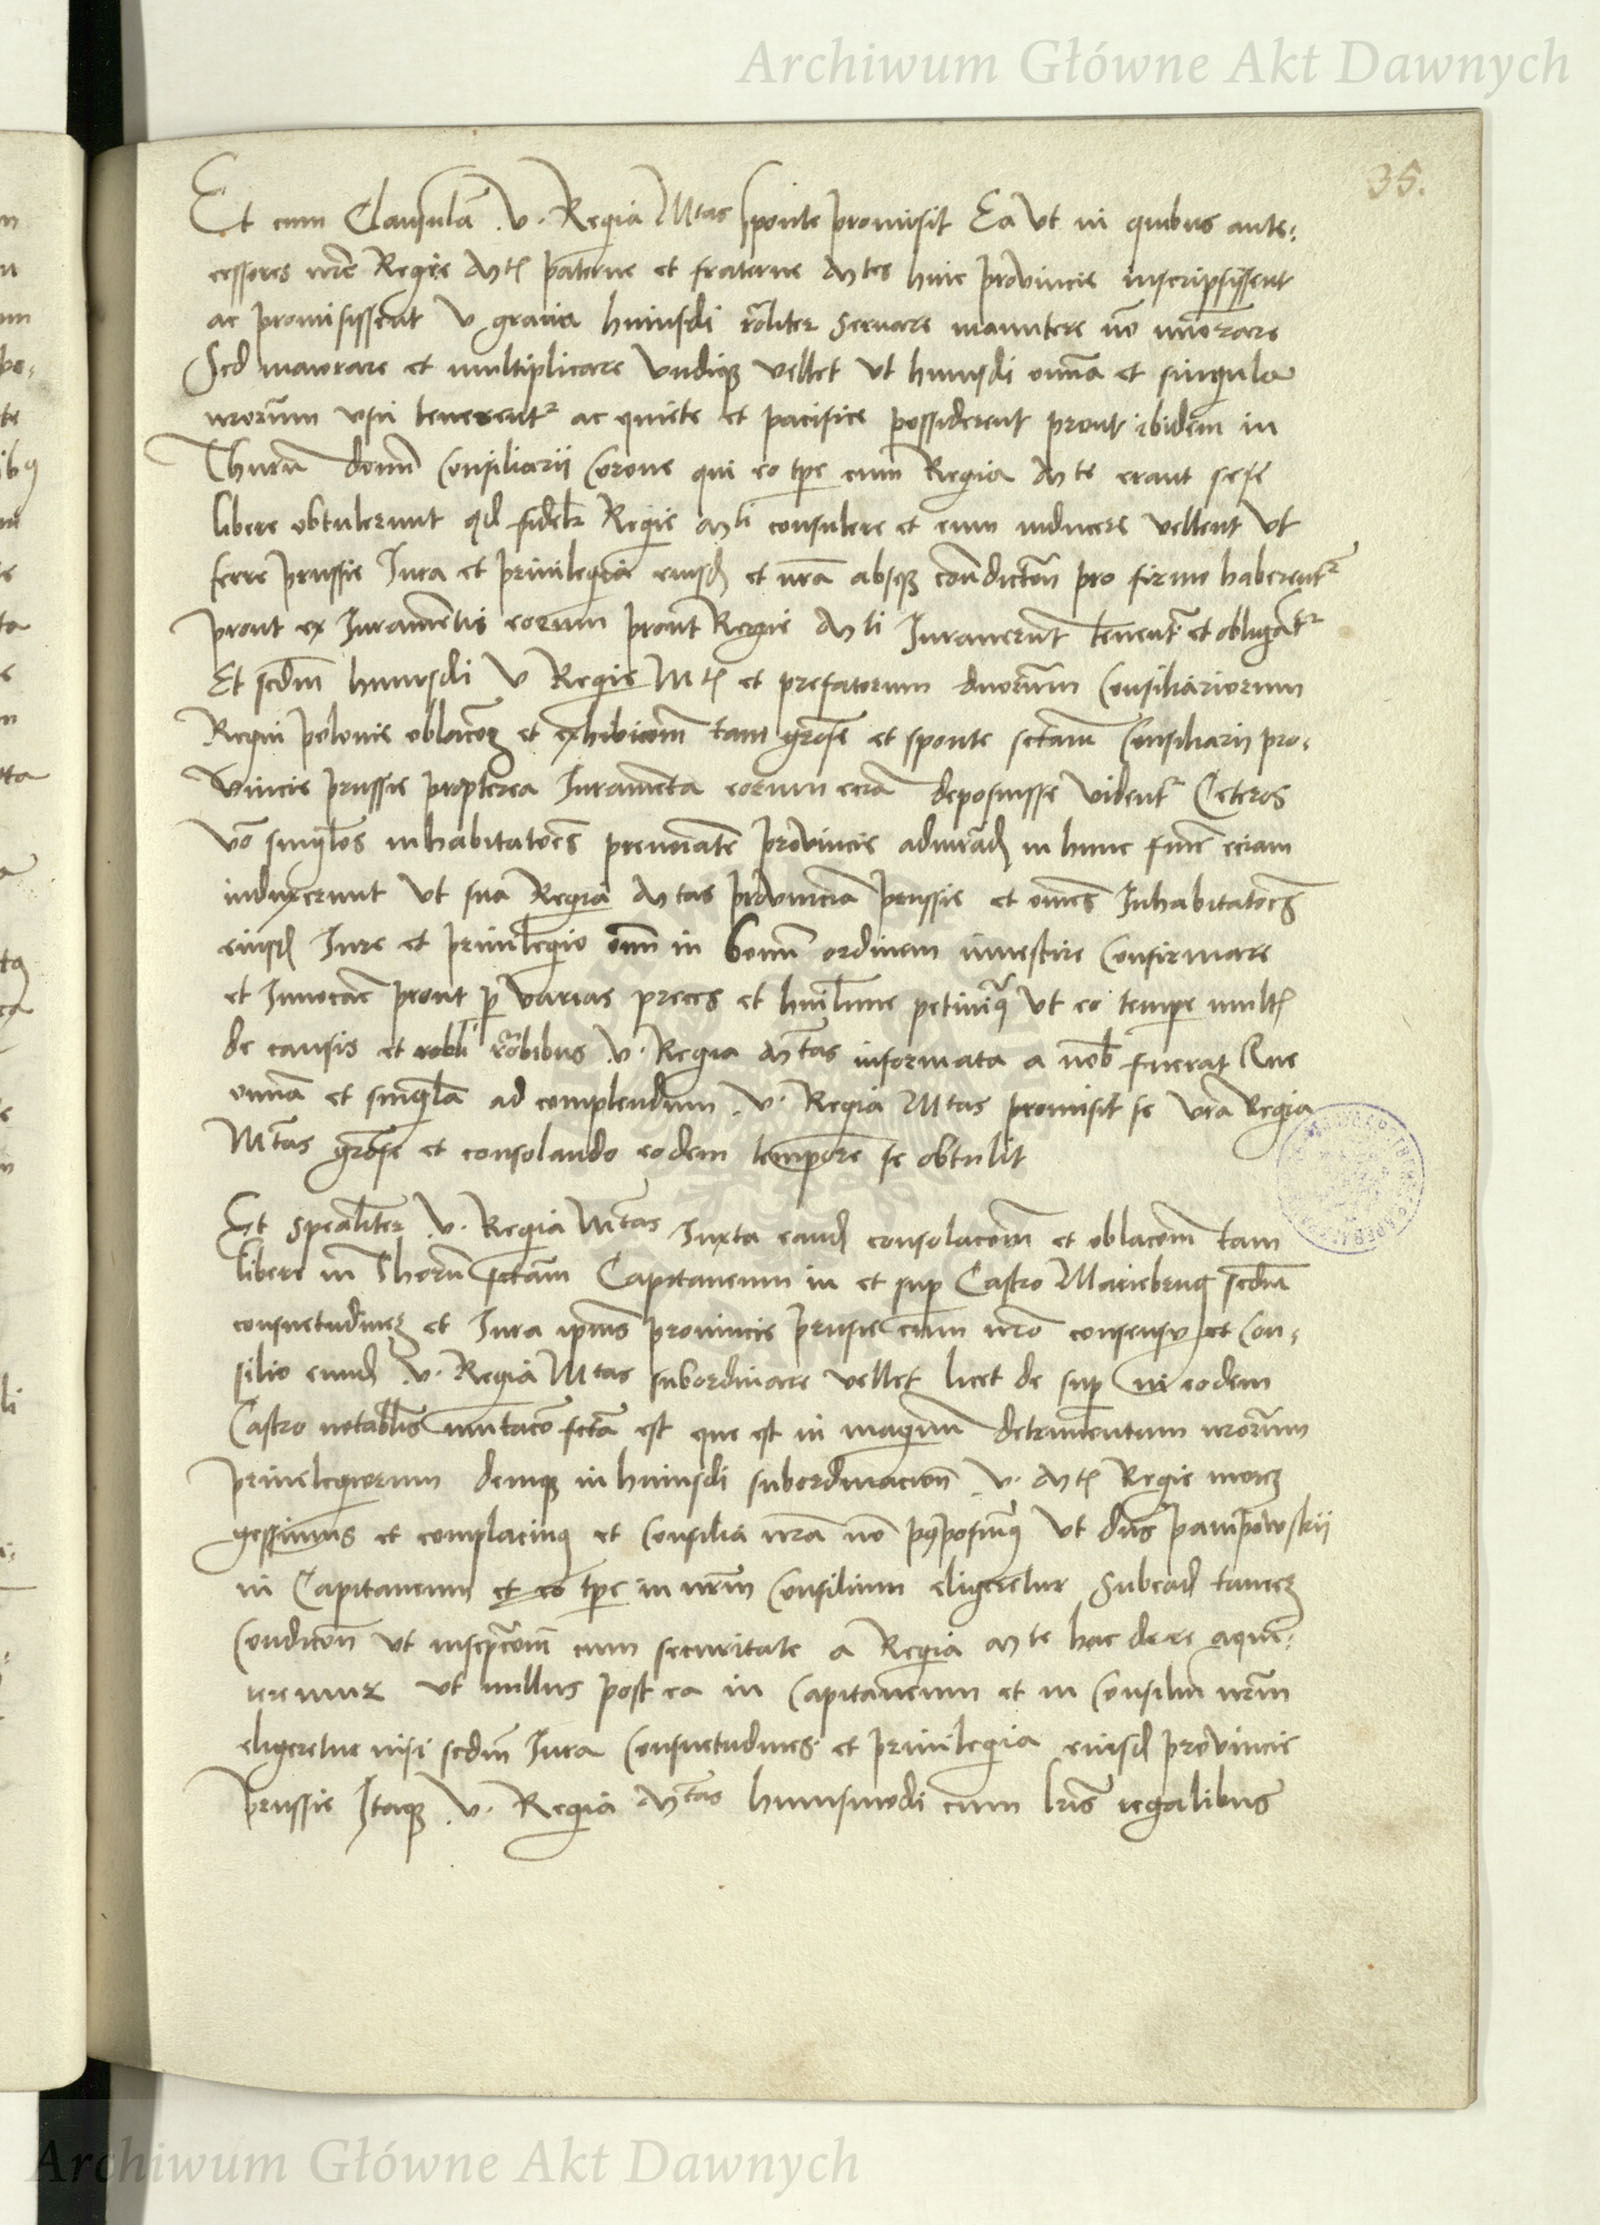 Archiwum Główne Akt Dawnych
35.
Et cum Clausula V. Regia Mtas sponte promisit Ea ut in quibus ante-
cessores vre Regie Mtis paterne et fraterne Mtes huic provincie inscripsissent
ac promisissent V gracia huiusdi servare manutere no minorare
Sed maiorare et multiplicare undique vellet ut huiusdi omnia et singula
nrorum usu tenerentr ac quiete et pacifice possiderent prout ibidem in
Thurn domi Consiliarii Corone qui eo tpe cum Regia Mte erant sese
libere obtulerunt qd fidelr Regie Mti consulere et eum inducere vellent ut
terre prussie Jura et privilegia eiusd et nra absque condicton pro firmo haberentr
prout ex Juramentis eorum prout Regie Mti Juraverunt tenentr et obligantr
Et scdm huiusdi V Regie Mtis et prefatorum dnorum Consiliariorum
Regni polonie oblacoem et exhibicoem tam grose et sponte sctam Consiliarii pro-
vincie prussie propterea Juramenta eorum ecia deposuisse videntr Ceteros
vo singlos inhabitatores prenoiate provincie ad in hunc fine eciam
induxerunt ut sua Regia Mtas provincia prussie et omnes Inhabitatores
eiusd Jure et privilegio omni in bonum ordinem investire Confirmare
et Innovare prout p varias preces et humilime petivimus ut eo tempe mult
de causis et robli racoibus V. Regia Mtas informata a nob fuerat Que
omnia et singula ad complendum V. Regia Mtas promisit se vra Regia
Mtas grose et consolando eodem tempore se obtulit
Et specialiter V. Regia Mtas Juxta eand consolacoem et oblacoem tam
libere in Thorn sctam Capitaneum in et sup Castro Marieburg scdm
consuetudines et Jura ipius provincie prusie cum nro consensu et Con-
silio eund V. Regia Mtas subordinare vellet licet de sup in eodem
Castro notabilis mutacio scta est que est in magnum detrimentum nrorum
privelegiorum denique in huiusdi subordinacion V. Mtis Regie morem
gessimus et complacimus et Consilia nra no pposuimus ut dns pampowskii
in Capitaneum et eo tpe in nrm Consilium eligeretur Subead tamen
Condicon ut inscpcoem cum securitate a Regia Mte hac de re aqui-
reremur ut nullus post ea in Capitaneum et in Consiliu nrm
eligeretur nisi scdm Jura Consuetudines et privilegia eiusd provincie
prussie Itaque V. Regia Mtas huiusmodi cum lris regalibus
Archiwum Główne Akt Dawnych